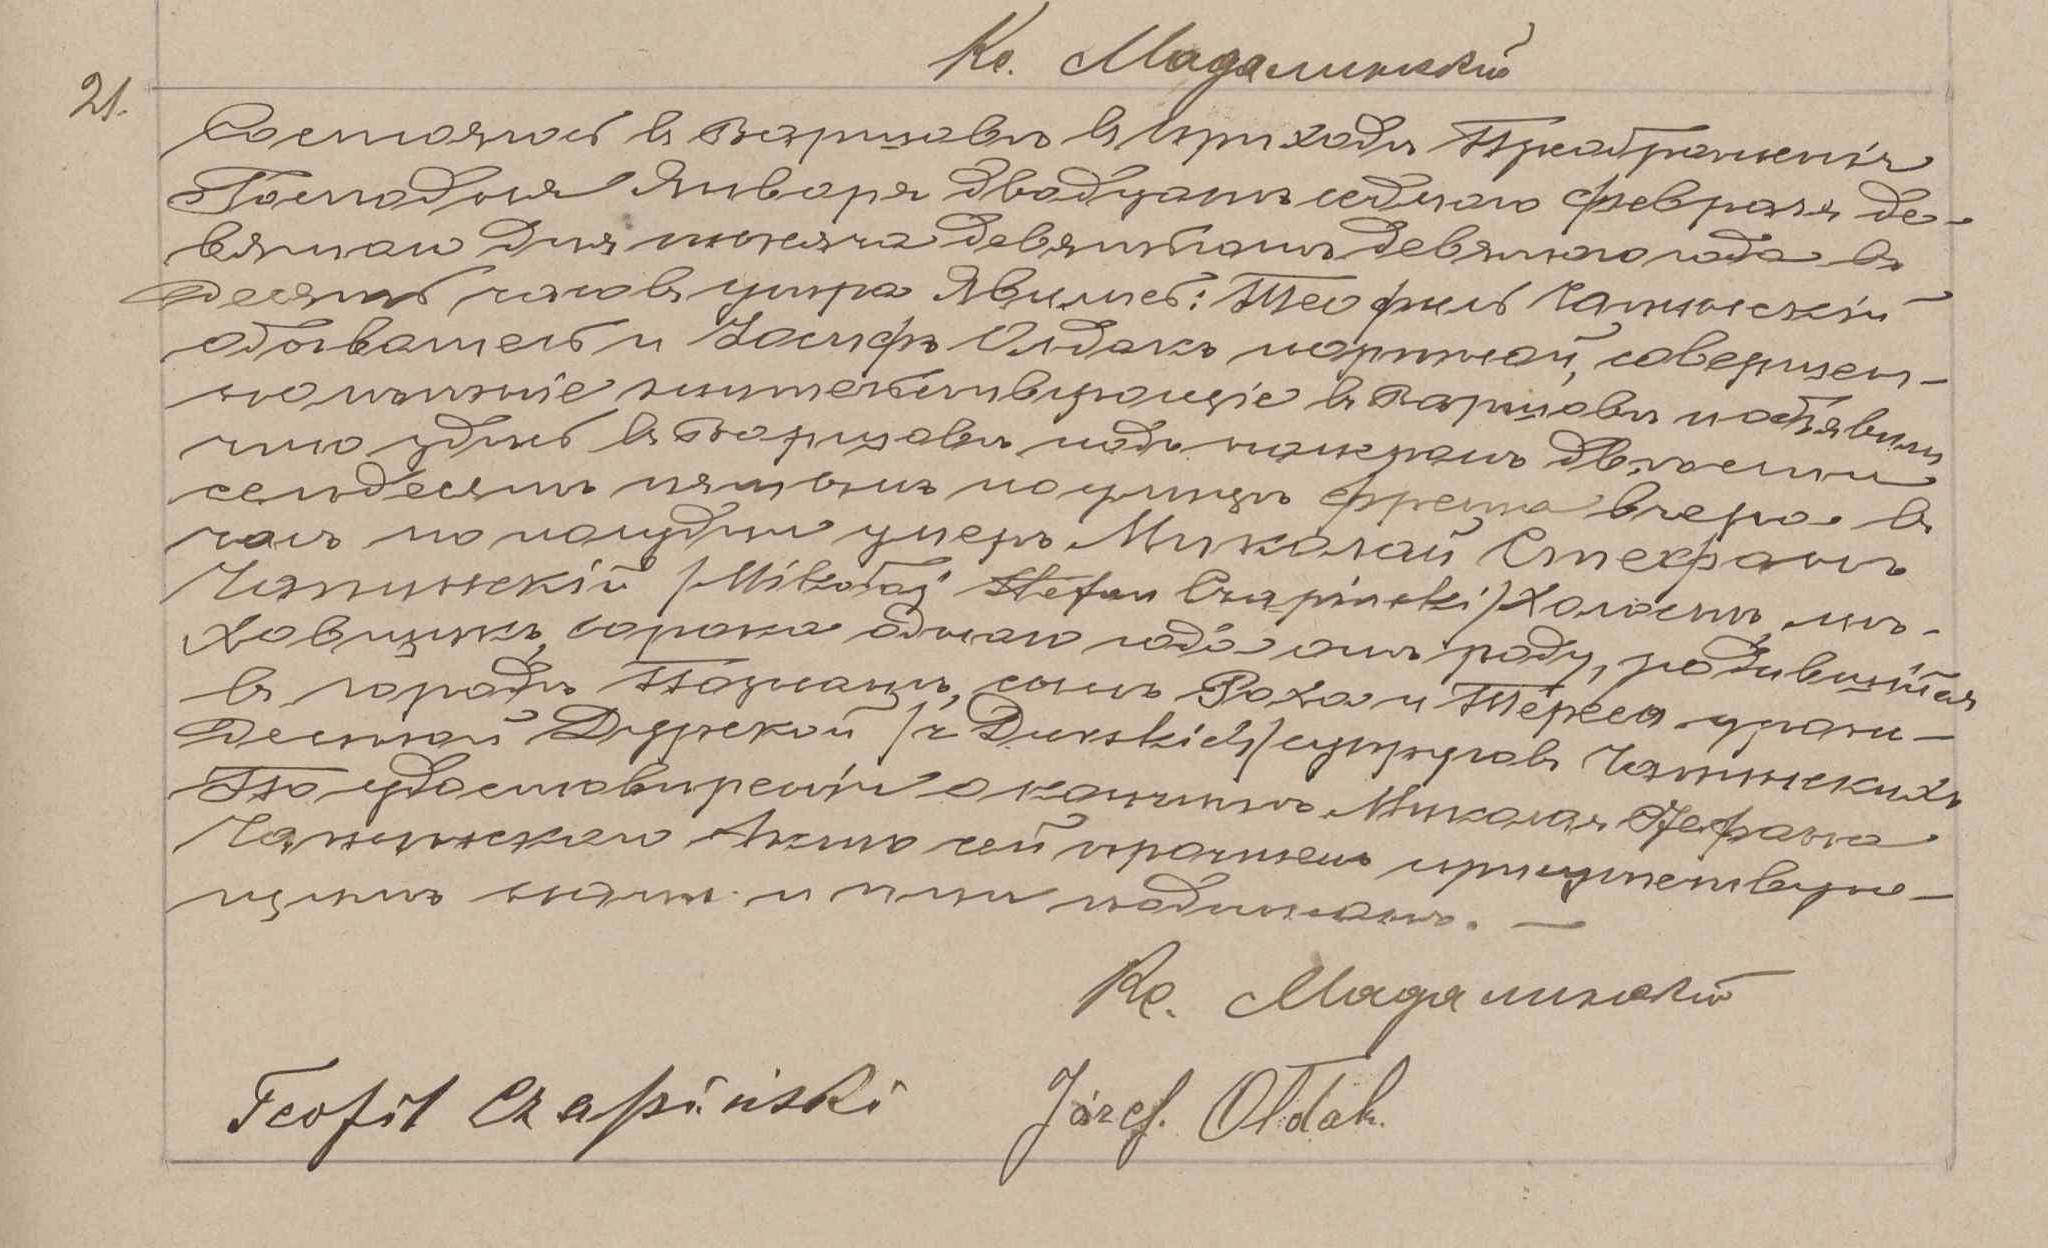 Кс. Мадалинскій
21.
Состоялось въ Варшавѣ въ приходѣ Преображенія
Господня Января двадцать седьмаго Февраля де-
вятаго дня тысяча девятьсотъ девятаго года въ
десять часовъ утра Явились: Теофиль Чапинскій
обыватель и Іосифъ Олдакъ портной, совершен-
нолѣтніе жительствующіе въ Варшавѣ и объявили
что здѣсь въ Варшавѣ подъ номеромъ двѣсти
семдесятъ пятымъ по улицѣ Фрета вчера въ
часъ по полудни умеръ Миколай Стефанъ
Чапинскій /Mikołaj Stefan Czapinski/ Холостъ, мѣ-
ховщикъ, сорока одного года отъ роду, родившійся
въ городѣ Познань, сынъ Роха и Тересы урожд-
денной Дурской /z Durskich/ супруговъ Чапинскихъ
По удостовѣреніи о кончинѣ Миколая Стефана
Чапинскаго Актъ сей прочтенъ присутствую-
щимъ нами и ими подписанъ. —
Кс. Мадалинскій
Teofil Czapiński Józef. Ołdak.